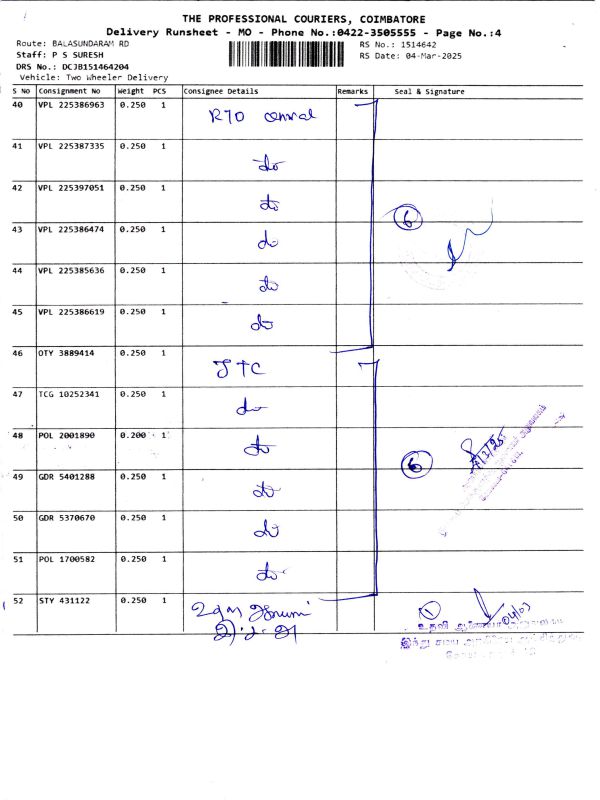 THE PROFESSIONAL COURIERS, COIMBATORE
Delivery Runsheet - MO - Phone No.:0422-3505555 - Page No.:4
Route: BALASUNDARAM RD RS No.: 1514642
Staff: P S SURESH RS Date: 04-Mar-2025
DRS No.: DCJB151464204
Vehicle: Two Wheeler Delivery
S No Consignment No Weight PCS Consignee Details Remarks Seal & Signature
40 VPL 225386963 0.250 1 RTO
41 VPL 225387335 0.250 1 do
42 VPL 225397051 0.250 1 do
6
43 VPL 225386474 0.250 1 do
44 VPL 225385636 0.250 1 do
45 VPL 225386619 0.250 1 do
46 OTY 3889414 0.250 1 JTC
47 TCG 10252341 0.250 1 do
48 POL 2001890 0.200 1 do
6
49 GDR 5401288 0.250 1 do
50 GDR 5370670 0.250 1 do
51 POL 1700582 0.250 1 do
52 STY 431122 0.250 1 உதவி ஆணையர் 1 04/03
உதவி ஆணையர்
இந்து சமய